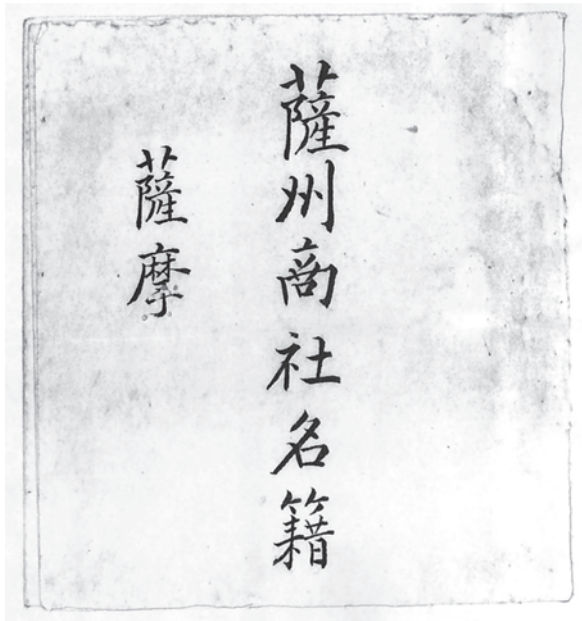 薩州商社名籍
薩摩